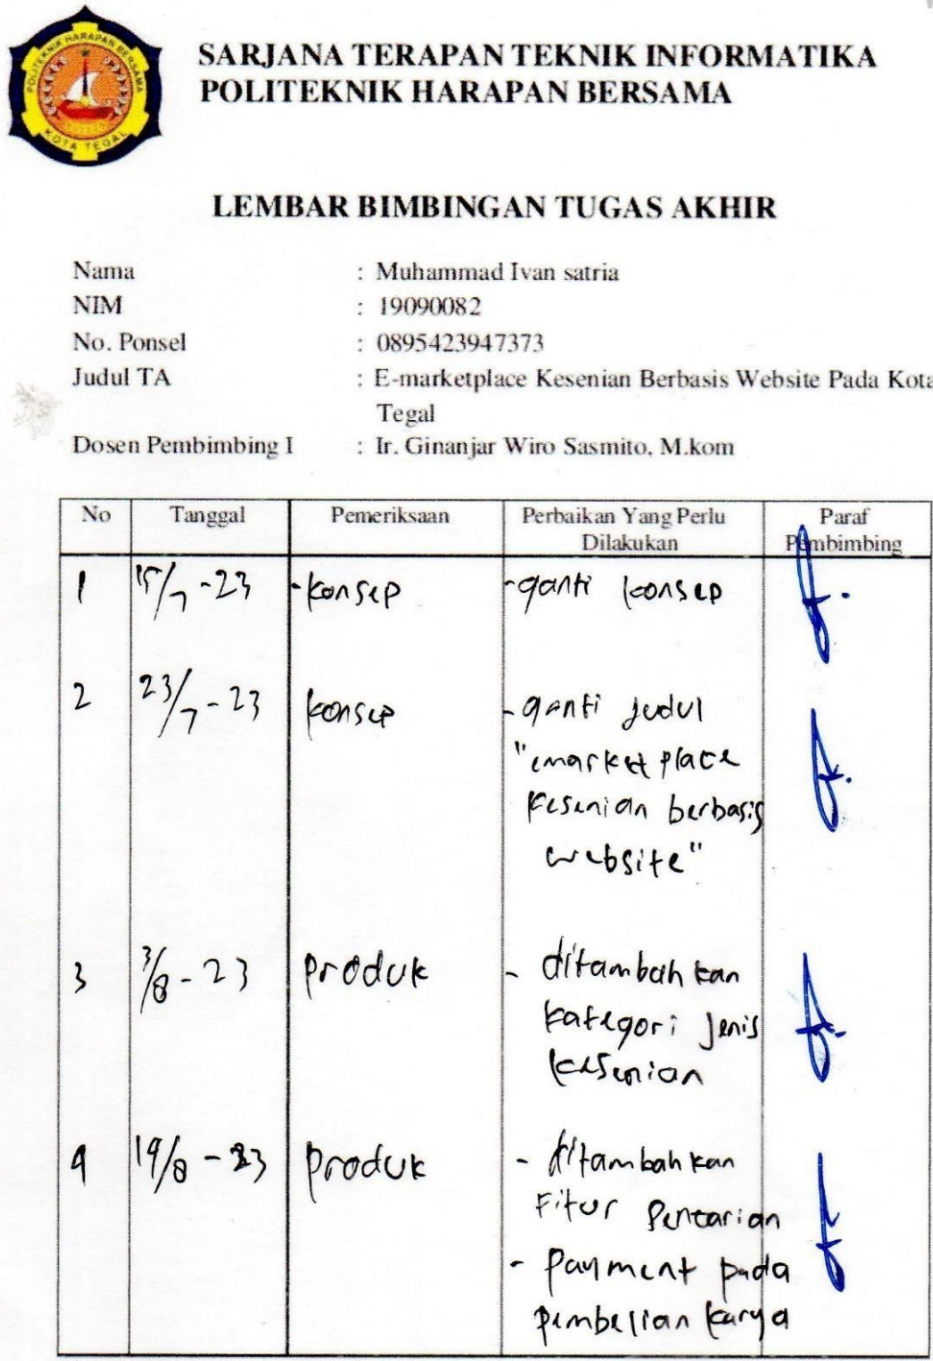 POLITEKNIK HARAPAN BERSAMA
KOTA TEGAL
SARJANA TERAPAN TEKNIK INFORMATIKA
POLITEKNIK HARAPAN BERSAMA
LEMBAR BIMBINGAN TUGAS AKHIR
Nama : Muhammad Ivan satria
NIM : 19090082
No. Ponsel : 0895423947373
Judul TA : E-marketplace Kesenian Berbasis Website Pada Kota
Tegal
Dosen Pembimbing I : Ir. Ginanjar Wiro Sasmito, M.kom
No Tanggal Pemeriksaan Perbaikan Yang Perlu Paraf
Dilakukan Pembimbing
1 15/7-23 -konsep -ganti konsep
2 23/7-23 konsep - ganti judul
"emarket place
kesenian berbasis
website"
3 3/8-23 produk - ditambah kan
kategori jenis
kesenian
4 19/8-23 produk - ditambah kan
Fitur Pencarian
- payment pada
pembelian karya